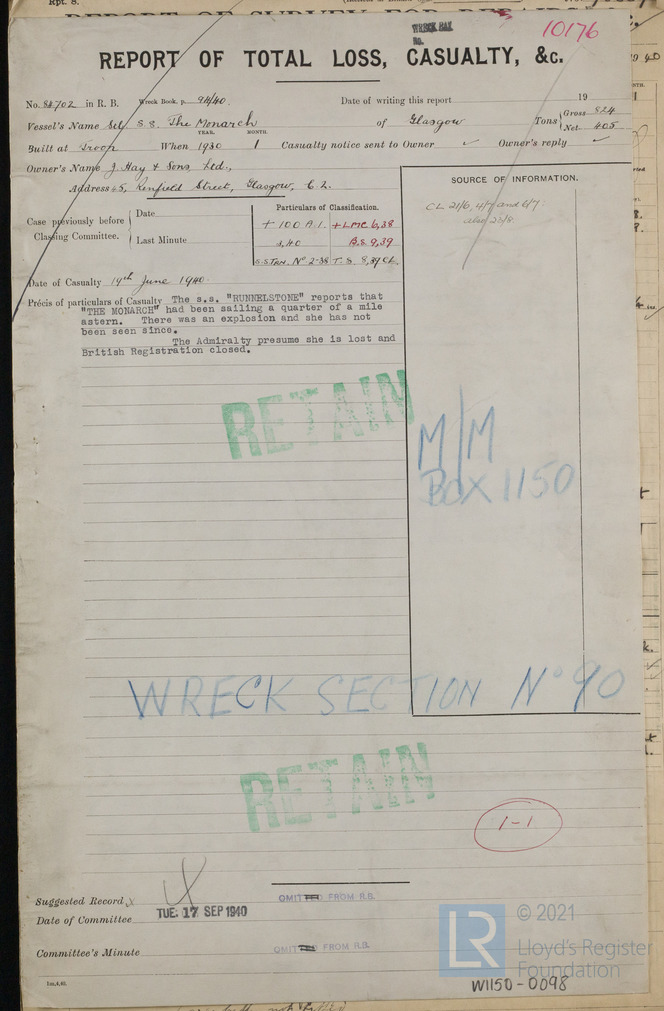 Rpt. 8.
WRECK BOX
No.
10176
REPORT OF TOTAL LOSS, CASUALTY, &c.
No. 84702 in R. B. Wreck Book, p. 911/40. Date of writing this report 19
Vessel's Name S.S. The Monarch of Glasgow Tons Gross 824
Net 405
YEAR. MONTH.
Built at Troon When 1930 1 Casualty notice sent to Owner ✓ Owner's reply ✓
Owner's Name J. Hay & Sons, Ltd.,
Address 45, Renfield Street, Glasgow, C.2.
SOURCE OF INFORMATION.
CL 21/6, 4/7 and 6/7.
also 23/8.
Case previously before Classing Committee.
Date
Last Minute
Particulars of Classification.
+ 100 A.1. + LMC 6,38
3,40 B.S. 9,39
S.S TRN. No 2-38 T.S 8,39 CL.
Date of Casualty 19th June 1940.
Précis of particulars of Casualty The s.s. "RUNNELSTONE" reports that
"THE MONARCH" had been sailing a quarter of a mile
astern. There was an explosion and she has not
been seen since.
The Admiralty presume she is lost and
British Registration closed.
RETAIN
M/M
BOX 1150
WRECK SECTION No 90
RETAIN
1-1
Suggested Record
OMITTED FROM R.B.
Date of Committee TUE. 17 SEP 1940
Committee's Minute
OMITTED FROM R.B.
LR
© 2021
Lloyd's Register
Foundation
W1150-0098